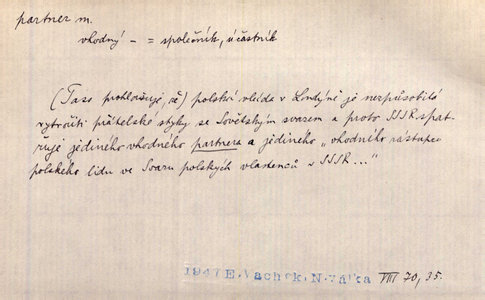 partner m.
vhodný – = společník, účastník
(Tass prohlašuje, že) polská vláda v Londýně je nezpůsobilá
vytvořiti přátelské styky se Sovětským svazem a proto SSSR spat-
řuje jediného vhodného partnera a jediného „vhodného zástupce
polského lidu ve Svazu polských vlastenců v SSSR..."
1947 E. Vachek. N. válka VIII 70, 35.